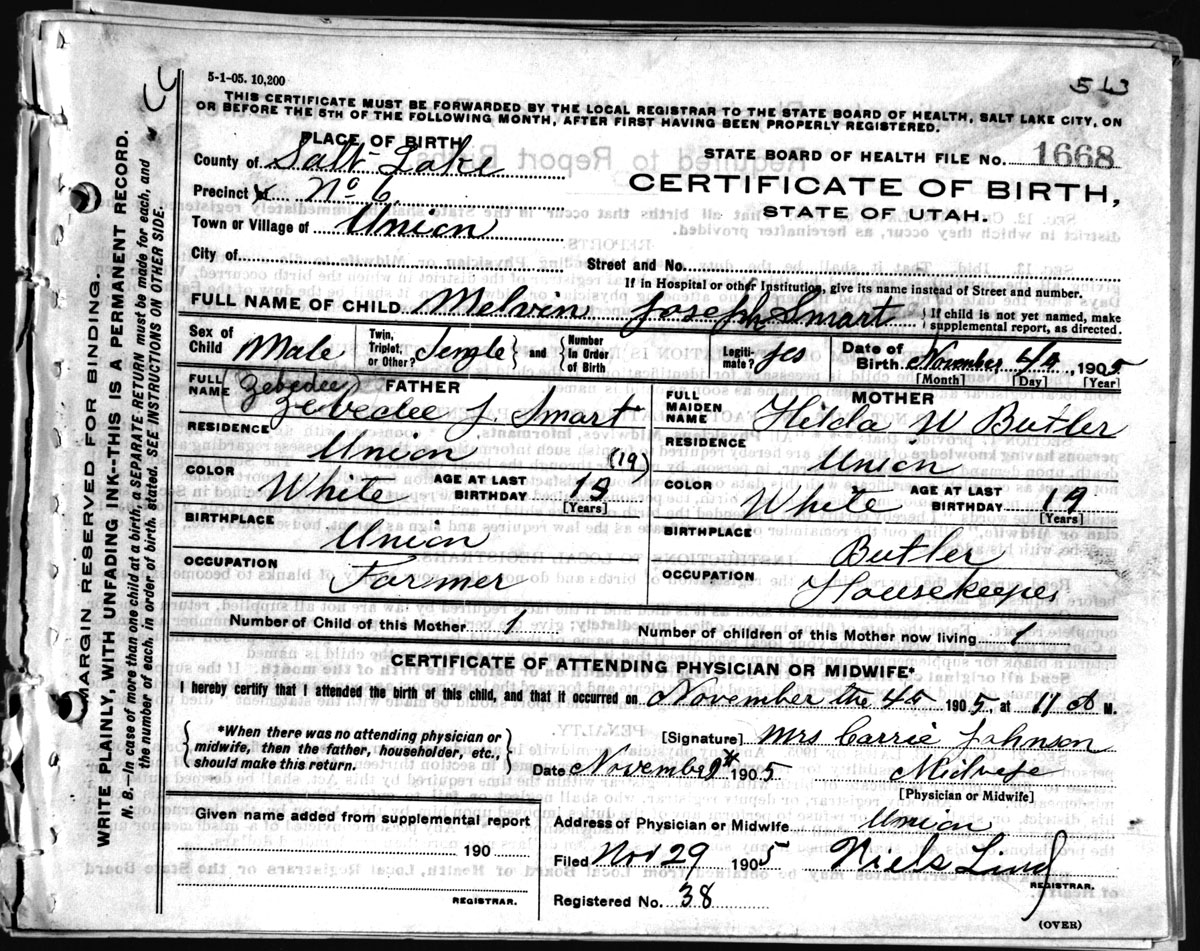 5-1-05. 10,200
543
THIS CERTIFICATE MUST BE FORWARDED BY THE LOCAL REGISTRAR TO THE STATE BOARD OF HEALTH, SALT LAKE CITY, ON
OR BEFORE THE 5TH OF THE FOLLOWING MONTH, AFTER FIRST HAVING BEEN PROPERLY REGISTERED.
PLACE OF BIRTH
County of Salt Lake
STATE BOARD OF HEALTH FILE No. 1668
Precinct No 6
CERTIFICATE OF BIRTH,
STATE OF UTAH.
Town or Village of Union
City of
Street and No.
If in Hospital or other Institution, give its name instead of Street and number.
FULL NAME OF CHILD Melvin Joseph Smart
{ If child is not yet named, make
supplemental report, as directed.
Sex of Child Male
Twin, Triplet, or Other? Sengle } and { Number In Order of Birth
Legiti-mate? yes
Date of Birth November 4th, 1905
[Month] [Day] [Year]
FULL NAME
(Zebedee)
FATHER
Zebedee J. Smart
RESIDENCE
Union
(19)
COLOR
White
AGE AT LAST BIRTHDAY 19
[Years]
BIRTHPLACE
Union
OCCUPATION
Farmer
FULL MAIDEN NAME
MOTHER
Hilda W Butler
RESIDENCE
Union
COLOR
White
AGE AT LAST BIRTHDAY 19
[Years]
BIRTHPLACE
Butler
OCCUPATION
Housekeeper
Number of Child of this Mother 1
Number of children of this Mother now living 1
CERTIFICATE OF ATTENDING PHYSICIAN OR MIDWIFE*
I hereby certify that I attended the birth of this child, and that it occurred on November the 4th 1905, at 11 M.
{ *When there was no attending physician or
midwife, then the father, householder, etc.,
should make this return. }
[Signature] Mrs Carrie Johnson
Date November 1905
Midwife
[Physician or Midwife]
Given name added from supplemental report
190
REGISTRAR.
Address of Physician or Midwife Union
Filed Nov 29 1905
Niels Lind
REGISTRAR.
Registered No. 38
(OVER)
MARGIN RESERVED FOR BINDING.
WRITE PLAINLY, WITH UNFADING INK--THIS IS A PERMANENT RECORD.
N. B.--In case of more than one child at a birth, a SEPARATE RETURN must be made for each, and
the number of each, in order of birth, stated. SEE INSTRUCTIONS ON OTHER SIDE.